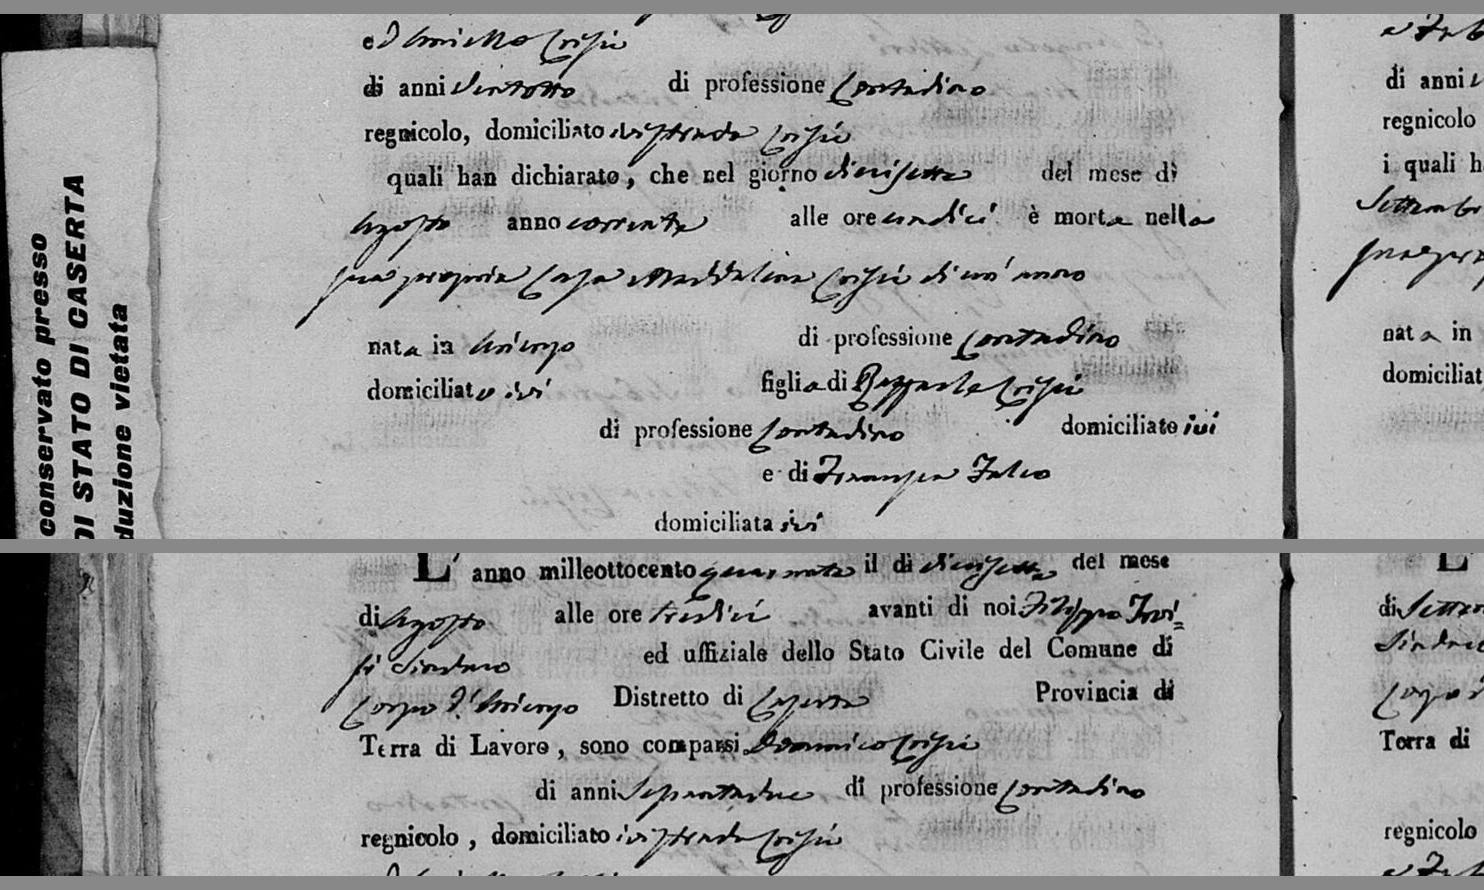 conservato presso
DI STATO DI CASERTA
duzione vietata
ed Aniello Crisci
di anni Ventotto di professione Contadino
regnicolo, domiciliato ivi strada Crisci
quali han dichiarato, che nel giorno diecisette del mese di
Agosto anno corrente alle ore undici è morta nella
sua propria Casa Maddalena Crisci di un' anno
nata in Arienzo di professione Contadino
domiciliata ivi figlia di Raffaele Crisci
di professione Contadino domiciliato ivi
e di Francesca Falco
domiciliata ivi
L' anno milleottocento quaranta il di diecisette del mese
di Agosto alle ore tredici avanti di noi Filippo
Sindaco ed uffiziale dello Stato Civile del Comune di
Corpo d' Arienzo Distretto di Caserta Provincia di
Terra di Lavoro, sono comparsi Domenico Crisci
di anni di professione Contadino
regnicolo, domiciliato ivi strada Crisci
di anni
regnicolo
i quali h
Settembr
nata in
domiciliat
L'
di Settem
Sindaco
Terra di
regnicolo